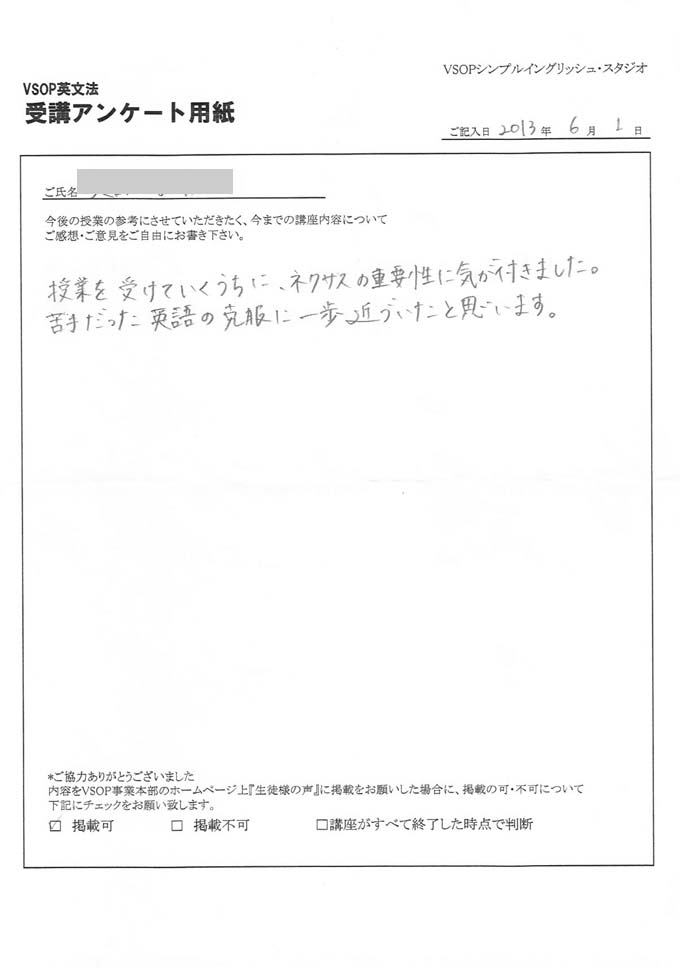 VSOPシンプルイングリッシュ・スタジオ
VSOP英文法
受講アンケート用紙
ご記入日 2013年 6月 1日
ご氏名
今後の授業の参考にさせていただきたく、今までの講座内容について
ご感想・ご意見をご自由にお書き下さい。
授業を受けていくうちに、ネクサスの重要性に気が付きました。
苦手だった英語の克服に一歩近づいたと思います。
*ご協力ありがとうございました
内容をVSOP事業本部のホームページ上『生徒様の声』に掲載をお願いした場合に、掲載の可・不可について
下記にチェックをお願い致します。
☑ 掲載可 □ 掲載不可 □講座がすべて終了した時点で判断